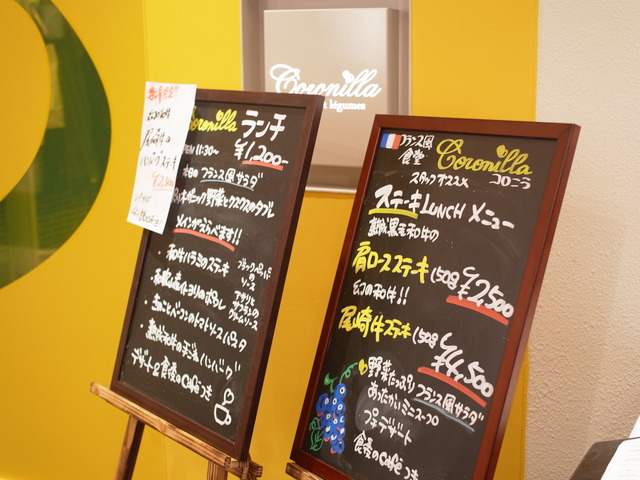 Coronilla
légumes
尾崎牛の
ハンバーグステーキ
¥2,500
Coronilla ランチ
11:30〜
¥1,200-
本日の フランス風サラダ
メインがえらべます!!
・和牛ハラミのステーキ
・きのことベーコンのトマトソースパスタ
ハンバーグ
デザート&食後のCaféつき
フランス風
食堂 Coronilla
スタッフオススメ コロニラ
ステーキLUNCHメニュー
熟成黒毛和牛の
肩ロースステーキ(150g)
¥2,500
幻の和牛!!
尾崎牛ステーキ(150g)
¥4,500
野菜たっぷり フランス風サラダ
あったかいミニスープ
プチデザート
食後のCaféつき